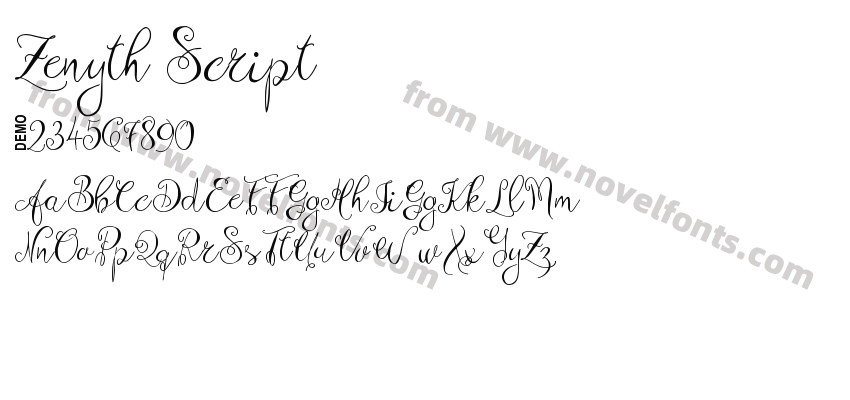 Zenyth Script
DEMO234567890
AaBbCcDdEeFfGgHhIiGgKkLlMm
NnOoPpQqRrSsTtUuVvWwXxYyZz
from www.novelfonts.com
from www.novelfonts.com